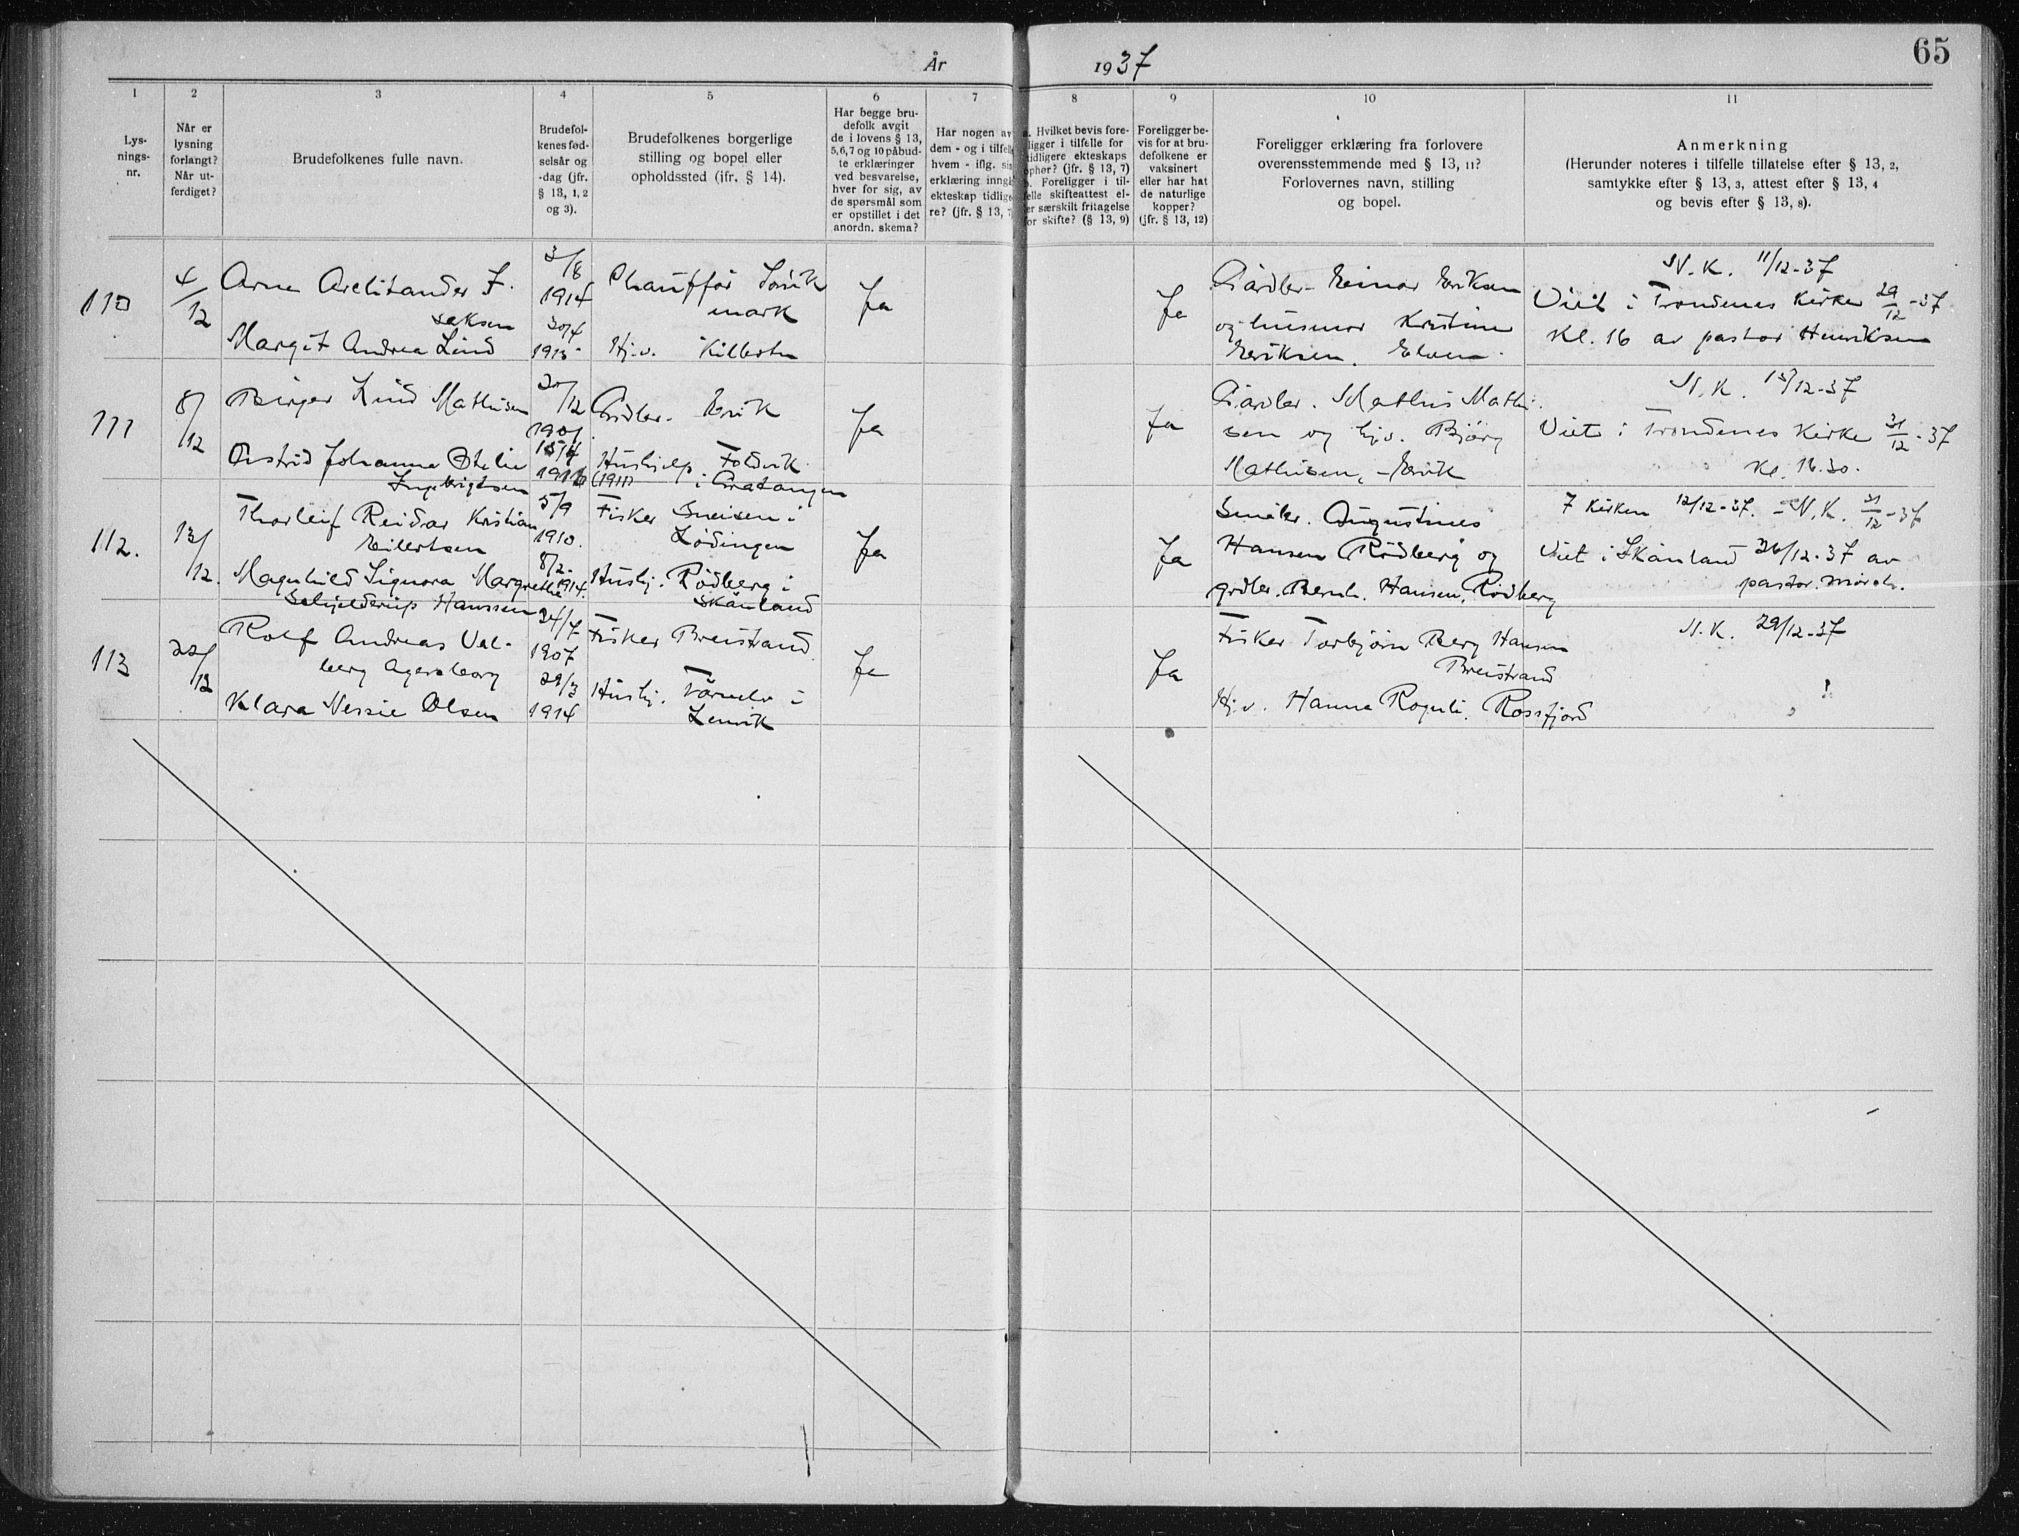 År 1937
65
1
2
3
4
5
6
7
8
9
10
11
Lys-
nings-
nr.
Når er
lysning
forlangt?
Når ut-
ferdiget?
Brudefolkenes fulle navn.
Brudefol-
kenes fød-
selsår og
-dag (jfr.
§ 13, 1, 2
og 3).
Brudefolkenes borgerlige
stilling og bopel eller
opholdssted (ifr. § 14).
Har begge bru-
defolk avgit
de i lovens § 13,
5,6,7 og 10 påbud-
te erklæringer
ved besvarelse,
hver for sig, av
de spørsmål som
er opstillet i det
anordn. skema?
Har nogen av
dem - og i tilfelle
hvem - iflg.
erklæring inngå
ekteskap tidlige
re? (jfr. § 13, 7
a. Hvilket bevis fore-
ligger i tilfelle for
tidligere ekteskaps
ophør? (jfr. § 13, 7)
b. Foreligger i til-
felle skifteattest el-
er særskilt fritagelse
for skifte? (§ 13, 9)
Foreligger be-
vis for at bru-
defolkene er
vaksinert
eller har hat
de naturlige
kopper?
(jfr. § 13, 12)
Foreligger erklæring fra forlovere
overensstemmende med § 13, 11?
Forlovernes navn, stilling
og bopel.
Anmerkning
(Herunder noteres i tilfelle tillatelse efter § 13, 2,
samtykke efter § 13, 3, attest efter § 13, 4
og bevis efter § 13, 8).
110
4/12
Arne
saksen
Margit Andrea Lind
3/8
1914
30/4
1915
Chauffør
mark
Hj.v.
Ja
Ja
Gårdbr. Einar Eriksen
og husmor Kristine
Eriksen.
N.K. 11/12-37
Viet i Trondenes Kirke 29/12-37
Kl. 16 av pastor Henriksen
111
8/12
Birger Lind Mathisen
Astrid Johanna Otelie
Ingebrigtsen
20/12
1901
15/4
Grdbr. Ervik
Hushjelp Foldvik
(1911) i Gratangen
Ja
Ja
Gårdbr. Mathis Mathi-
sen og hj.v. Bjørg
Mathisen, - Ervik
N.K. 15/12-37
Viet i Trondenes Kirke 31/12-37
Kl. 16.30.
112.
13/12.
Thorleif Reidar Kristian
Eilertsen
Magnhild Signora Margrethe
Schjelderup Hanssen
5/9
1910.
8/2-
1914.
Fisker Sneisen i
Lødingen
Hushj. Rødberg i
Skånland
Ja
Ja
Småbr. Augustines
Hansen Rødberg og
grdbr. Bernh. Hansen, Rødberg
7 Kirken 12/12-37. - N.K. 31/12-37
Viet i Skånland 26/12-37 av
pastor Mørch.
113
22/12
Rolf Andreas Val-
berg Agersborg
Klara Nessie Olsen
24/7
1907
29/3
1914
Fisker Breistrand
Hushj. Tårnelv i
Lenvik
Ja
Ja
Fisker Torbjørn Berg Hansen
Breistrand
Hj.v. Hanna Rognli. Rossfjord
N.K. 29/12-37